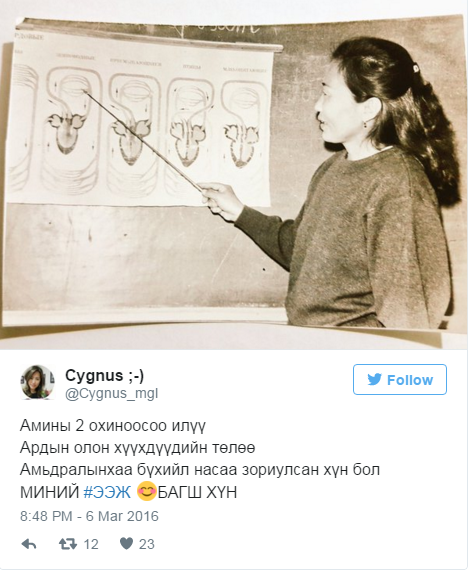 Cygnus ;-)
@Cygnus_mgl
Follow
Амины 2 охиноосоо илүү
Ардын олон хүүхдүүдийн төлөө
Амьдралынхаа бүхийл насаа зориулсан хүн бол
МИНИЙ #ЭЭЖ 😊БАГШ ХҮН
8:48 PM - 6 Mar 2016
12 23